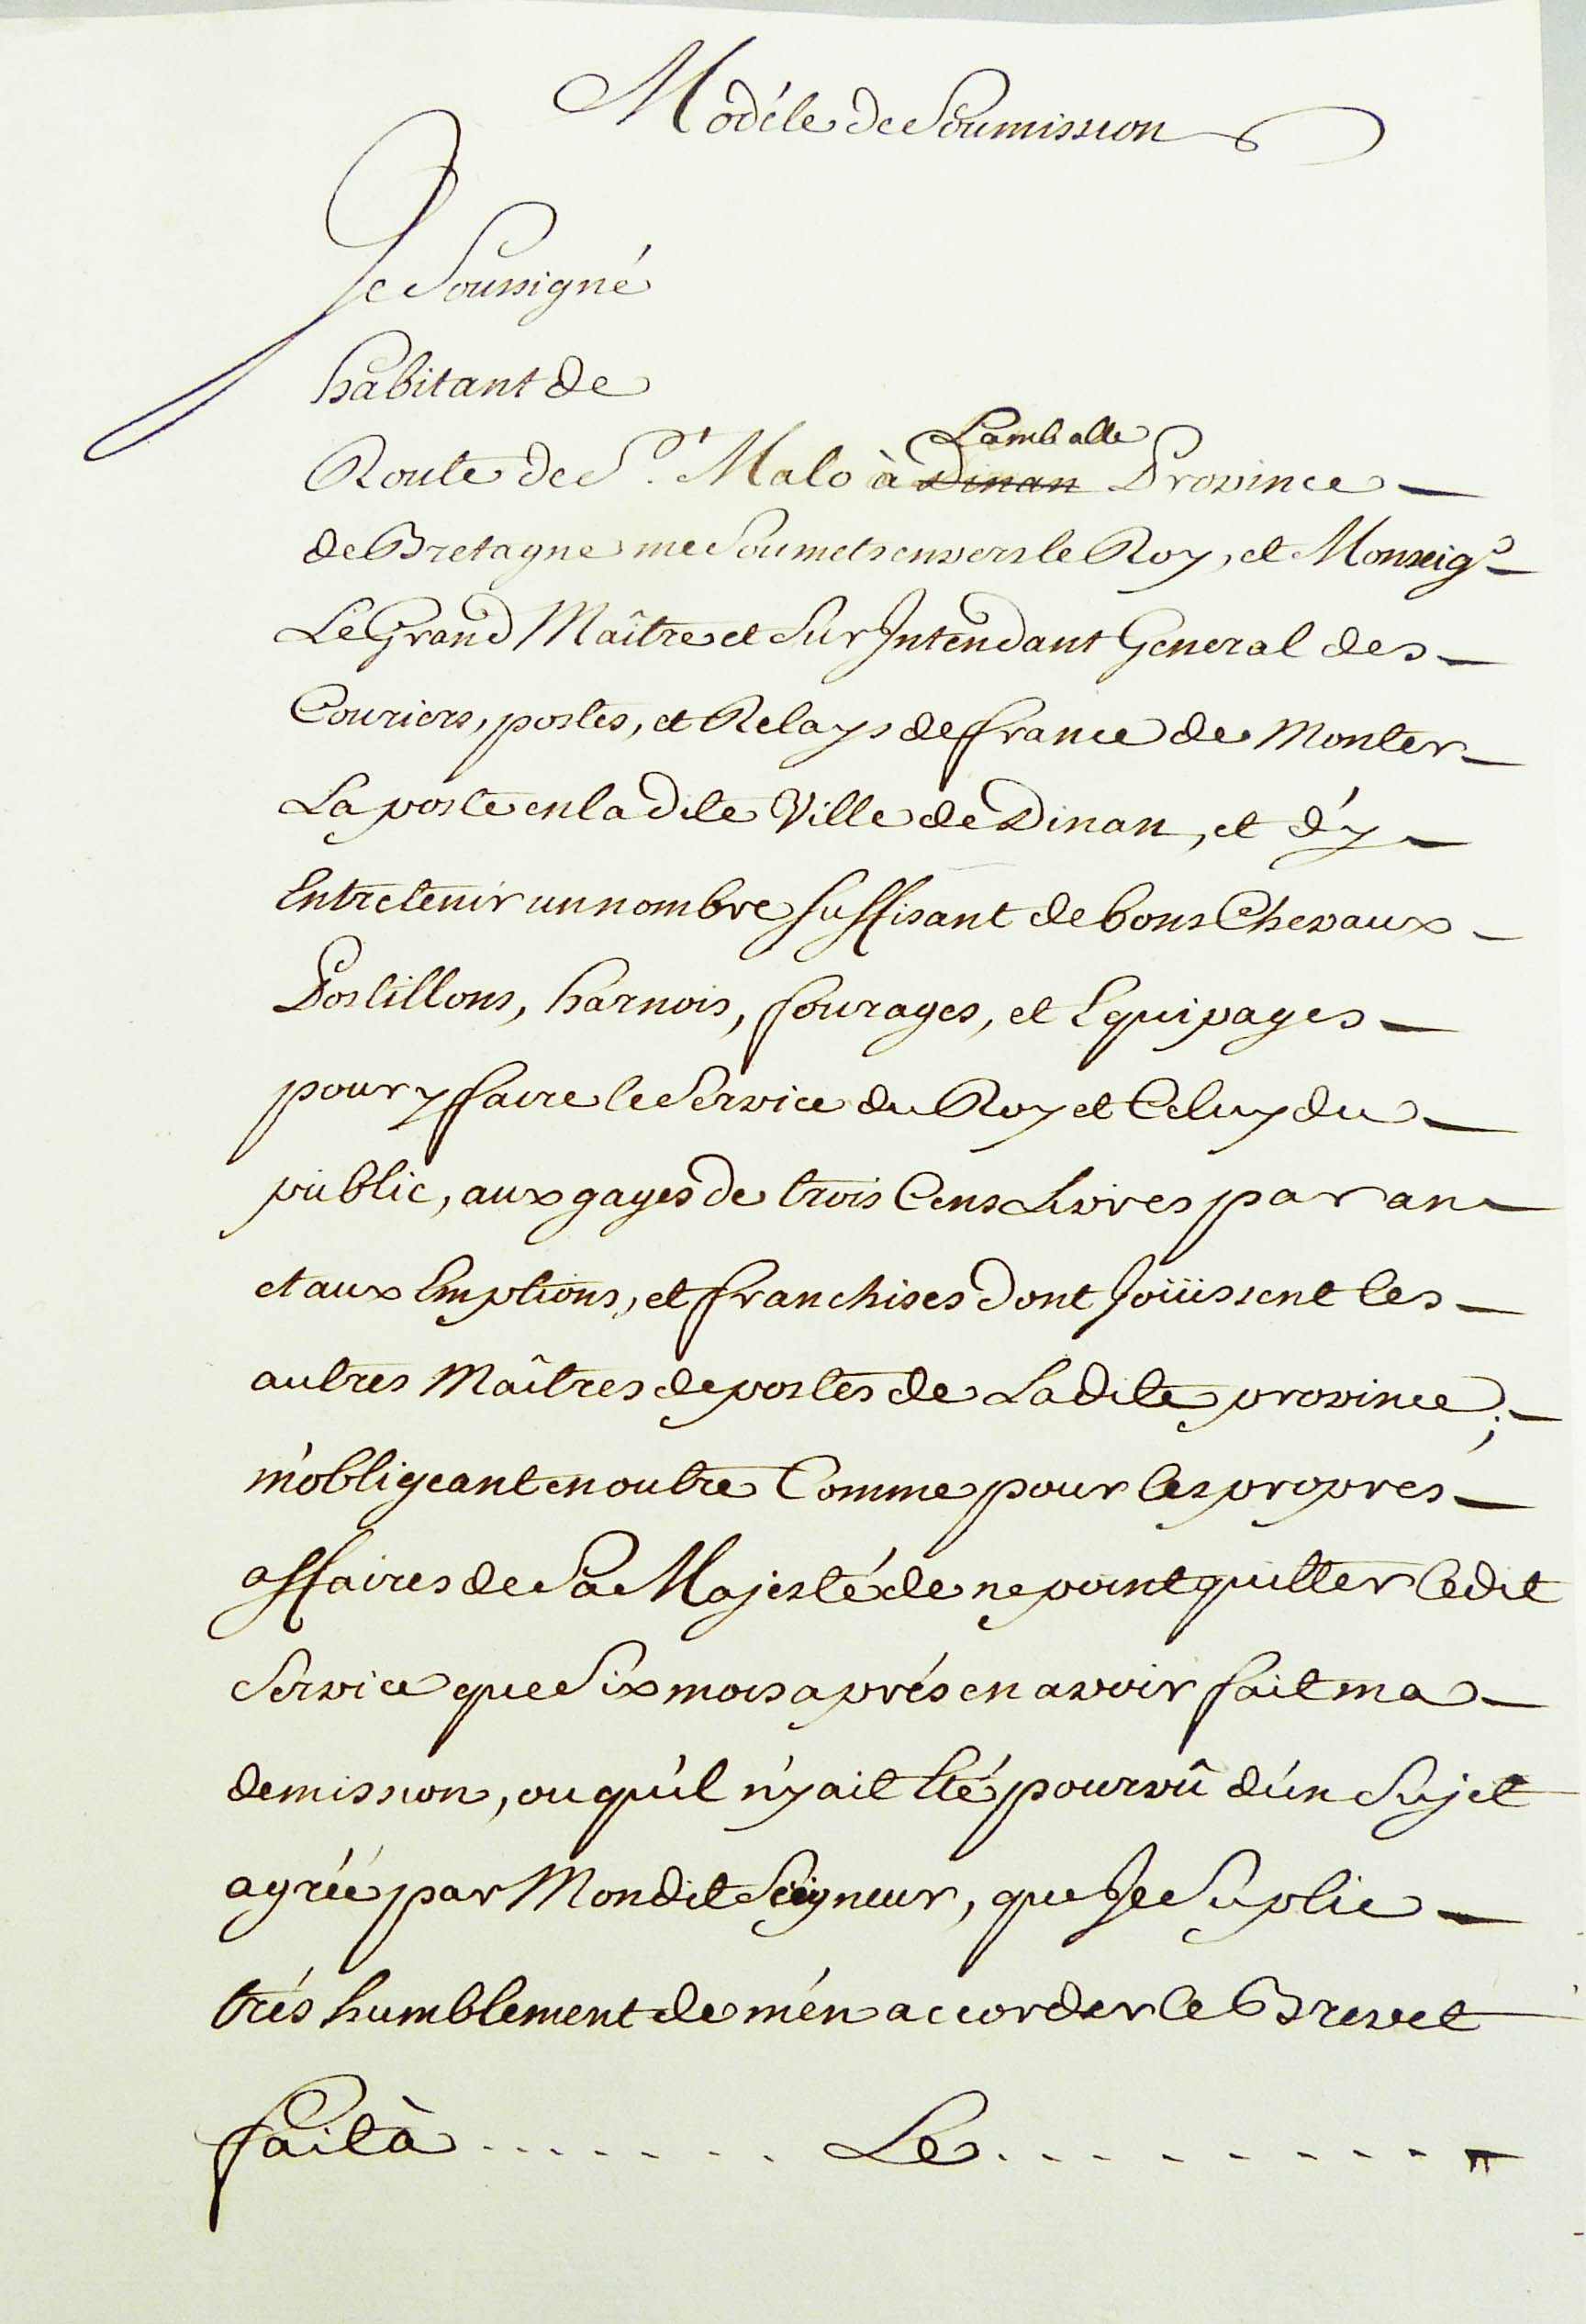 Modéle de Soumission
Je Soussigné
habitant de
Lamballe
Route de St. Malo à Dinan Province
de Bretagne me Soumets envers le Roy, et Monseigr
Le Grand Maître et Sur Intendant General des
Couriers, postes, et Relays de france de Monter
La poste en la dite Ville de Dinan, et d'y
Entretenir un nombre suffisant de bons Chevaux
Postillons, harnois, fourages, et Equipages
pour y faire le Service du Roy et Celuy du
public, aux gages de trois Cens Livres par an
et aux Emptions, et franchises dont Joüissent les
autres Maîtres de postes de Ladite province;
m'obligeant en outre Comme pour les propres
affaires de Sa Majesté de ne point quitter ledit
Service que Six mois aprés en avoir fait ma
demission, ou qu'il n'y ait Eté pourvû d'un Sujet
agréé par Mondit Seigneur, que Je Suplie
trés humblement de m'en accorder le Brevet
fait à ....... Le .........